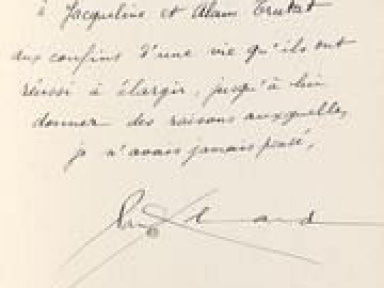 à Jacqueline et Alain Trutat
aux confins d'une vie qu'ils ont
réussi à élargir, jusqu'à lui
donner des raisons auxquelles
je n'avais jamais pensé,